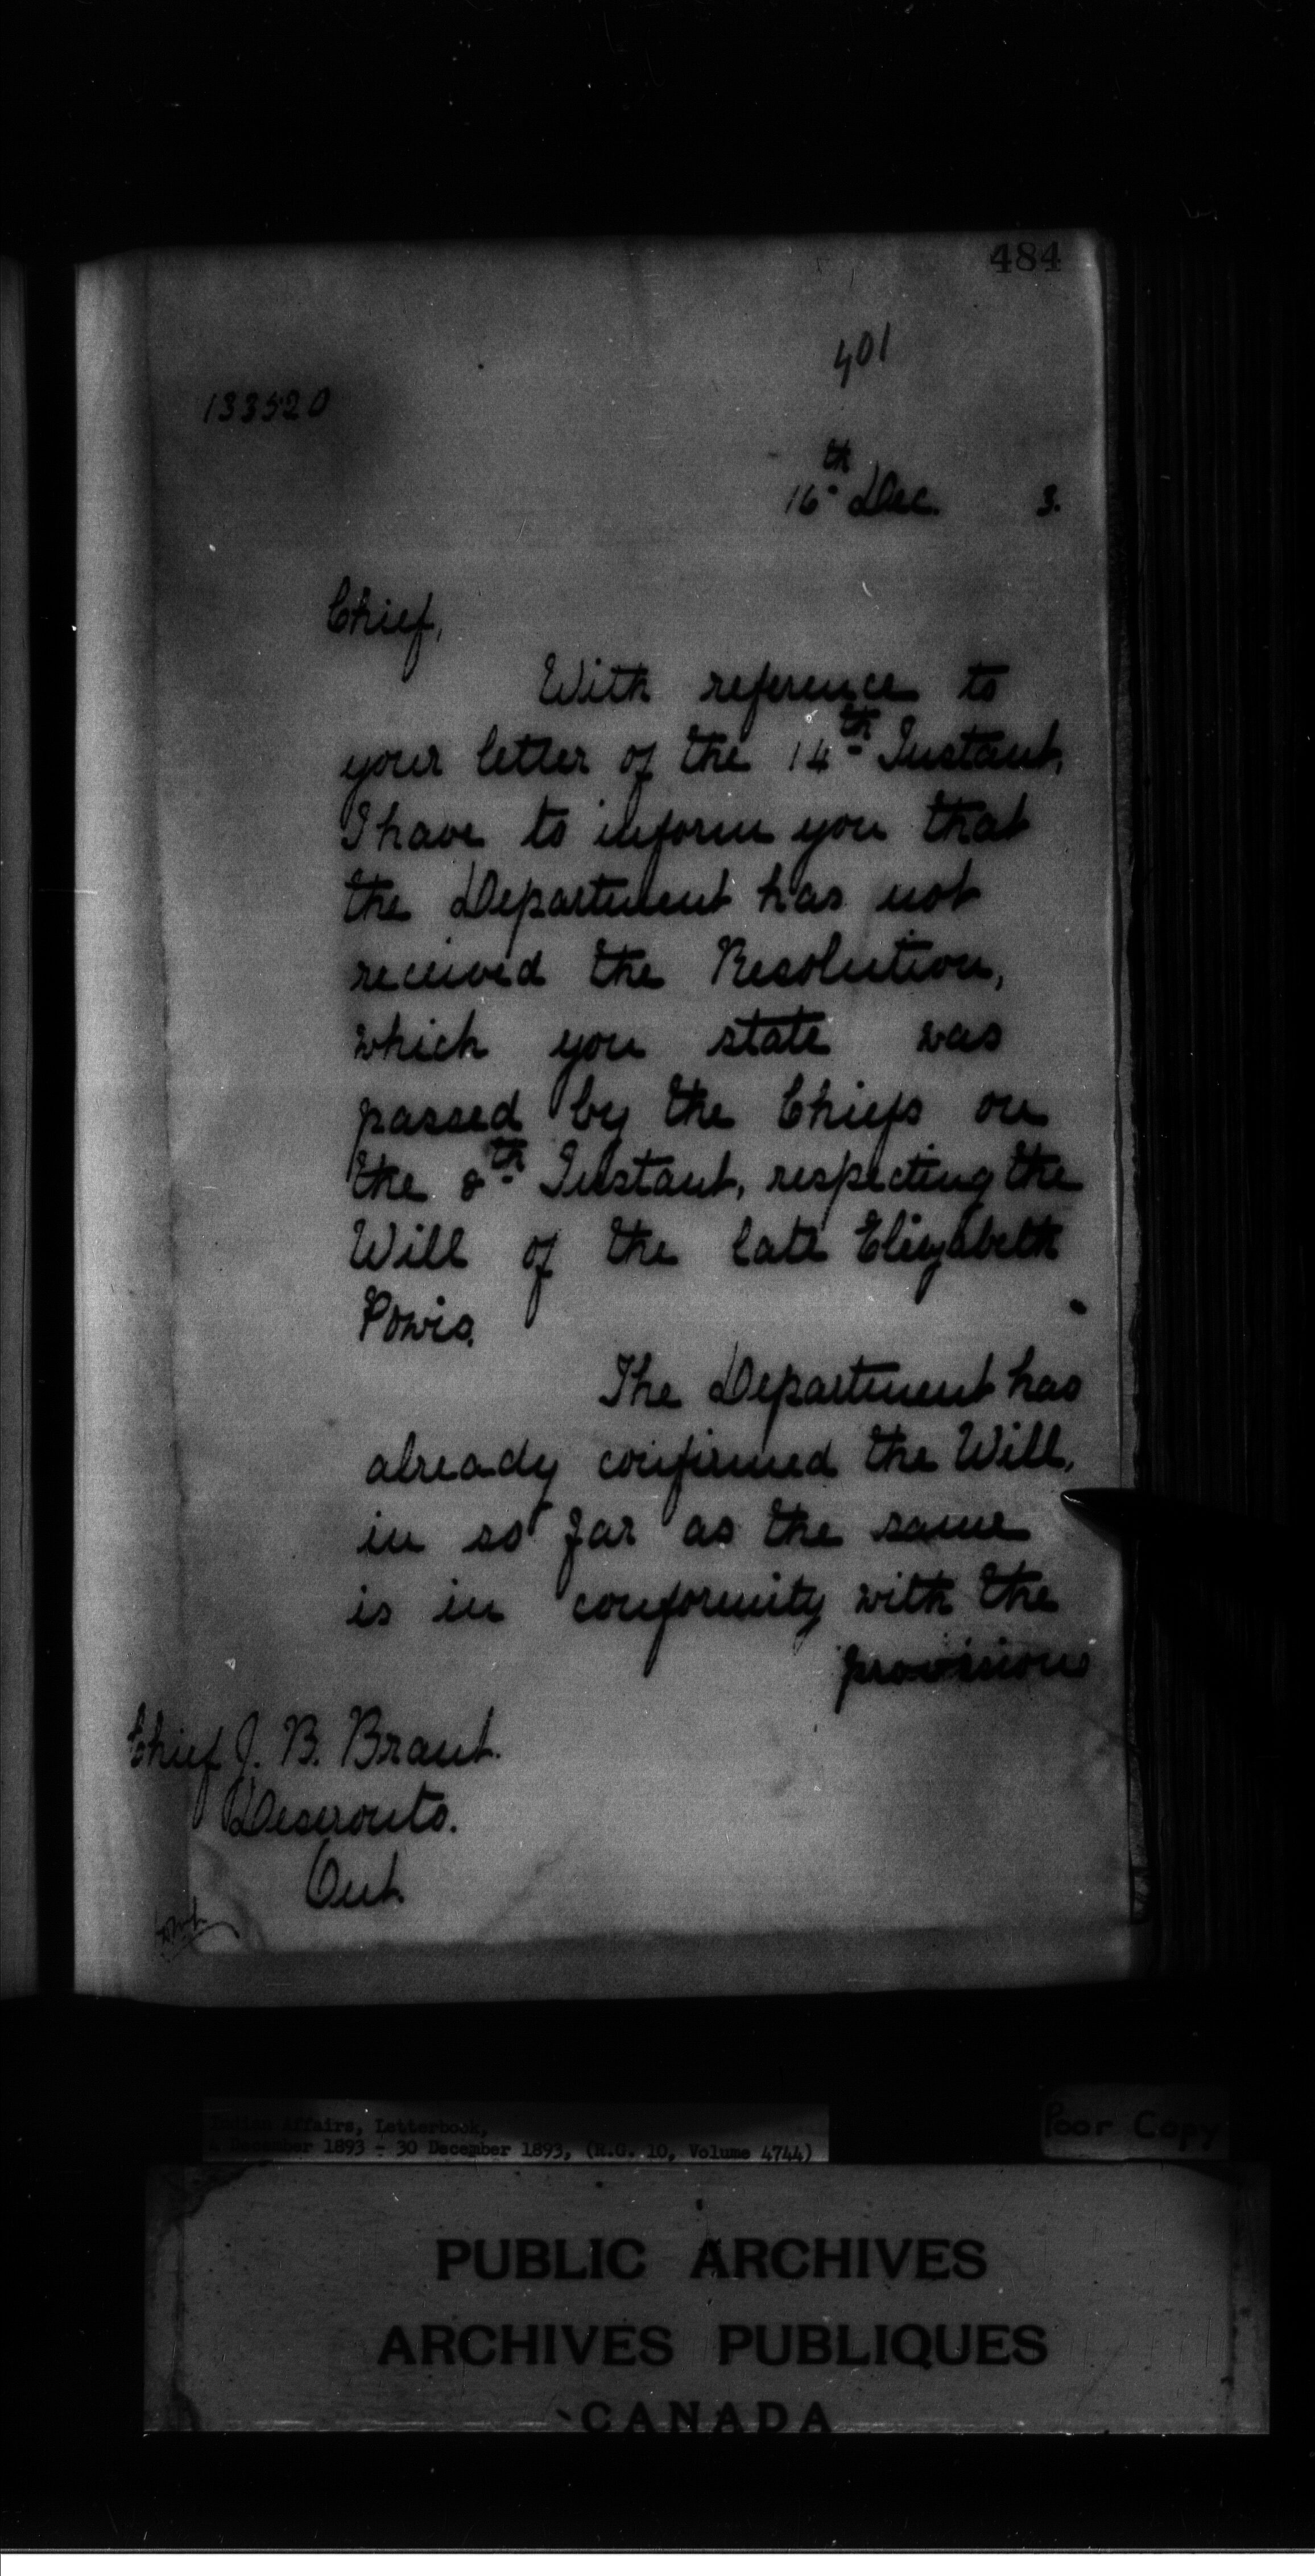 484
401
133520
16th Dec. 3.
Chief,
With reference to
your letter of the 14th Instant,
I have to inform you that
the Department has not
received the Resolution,
which you state was
passed by the Chiefs on
the 8th Instant, respecting the
Will of the late Elizabeth
Powis.
The Department has
already confirmed the Will,
in so far as the same
is in conformity with the
provisions
Chief J. B. Brant.
Deseronto.
Ont.
Indian Affairs, Letterbook,
December 1893 - 30 December 1893, (R.G. 10, Volume 4744)
Poor Copy
PUBLIC ARCHIVES
ARCHIVES PUBLIQUES
CANADA